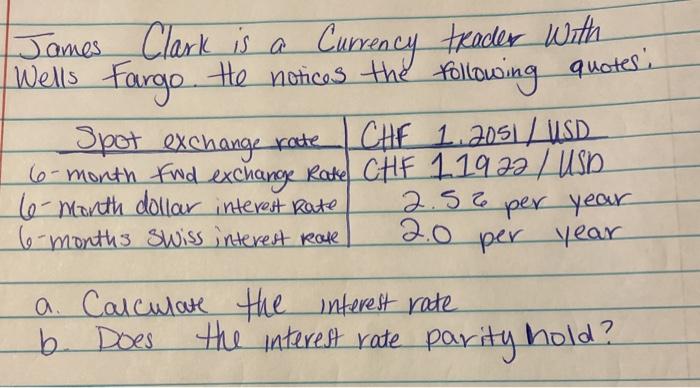 James Clark is a Currency trader With
Wells Fargo. He notices the following quotes:
Spot exchange rate | CHF 1.2051 / USD
6-month Fwd exchange Rate | CHF 1.1922 / USD
6-month dollar interest Rate | 2.5% per year
6-months Swiss interest rate | 2.0 per year
a. Calculate the interest rate
b. Does the interest rate parity hold?